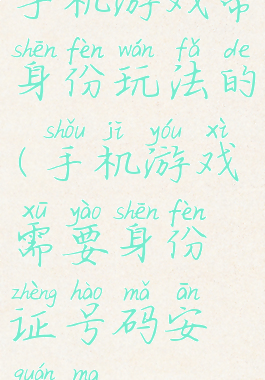 手机游戏需
shēn fèn wán fǎ de
身份玩法的
shǒu jī yóu xì
(手机游戏
xū yào shēn fèn
需要身份
zhèng hào mǎ ān
证号码安
quán ma